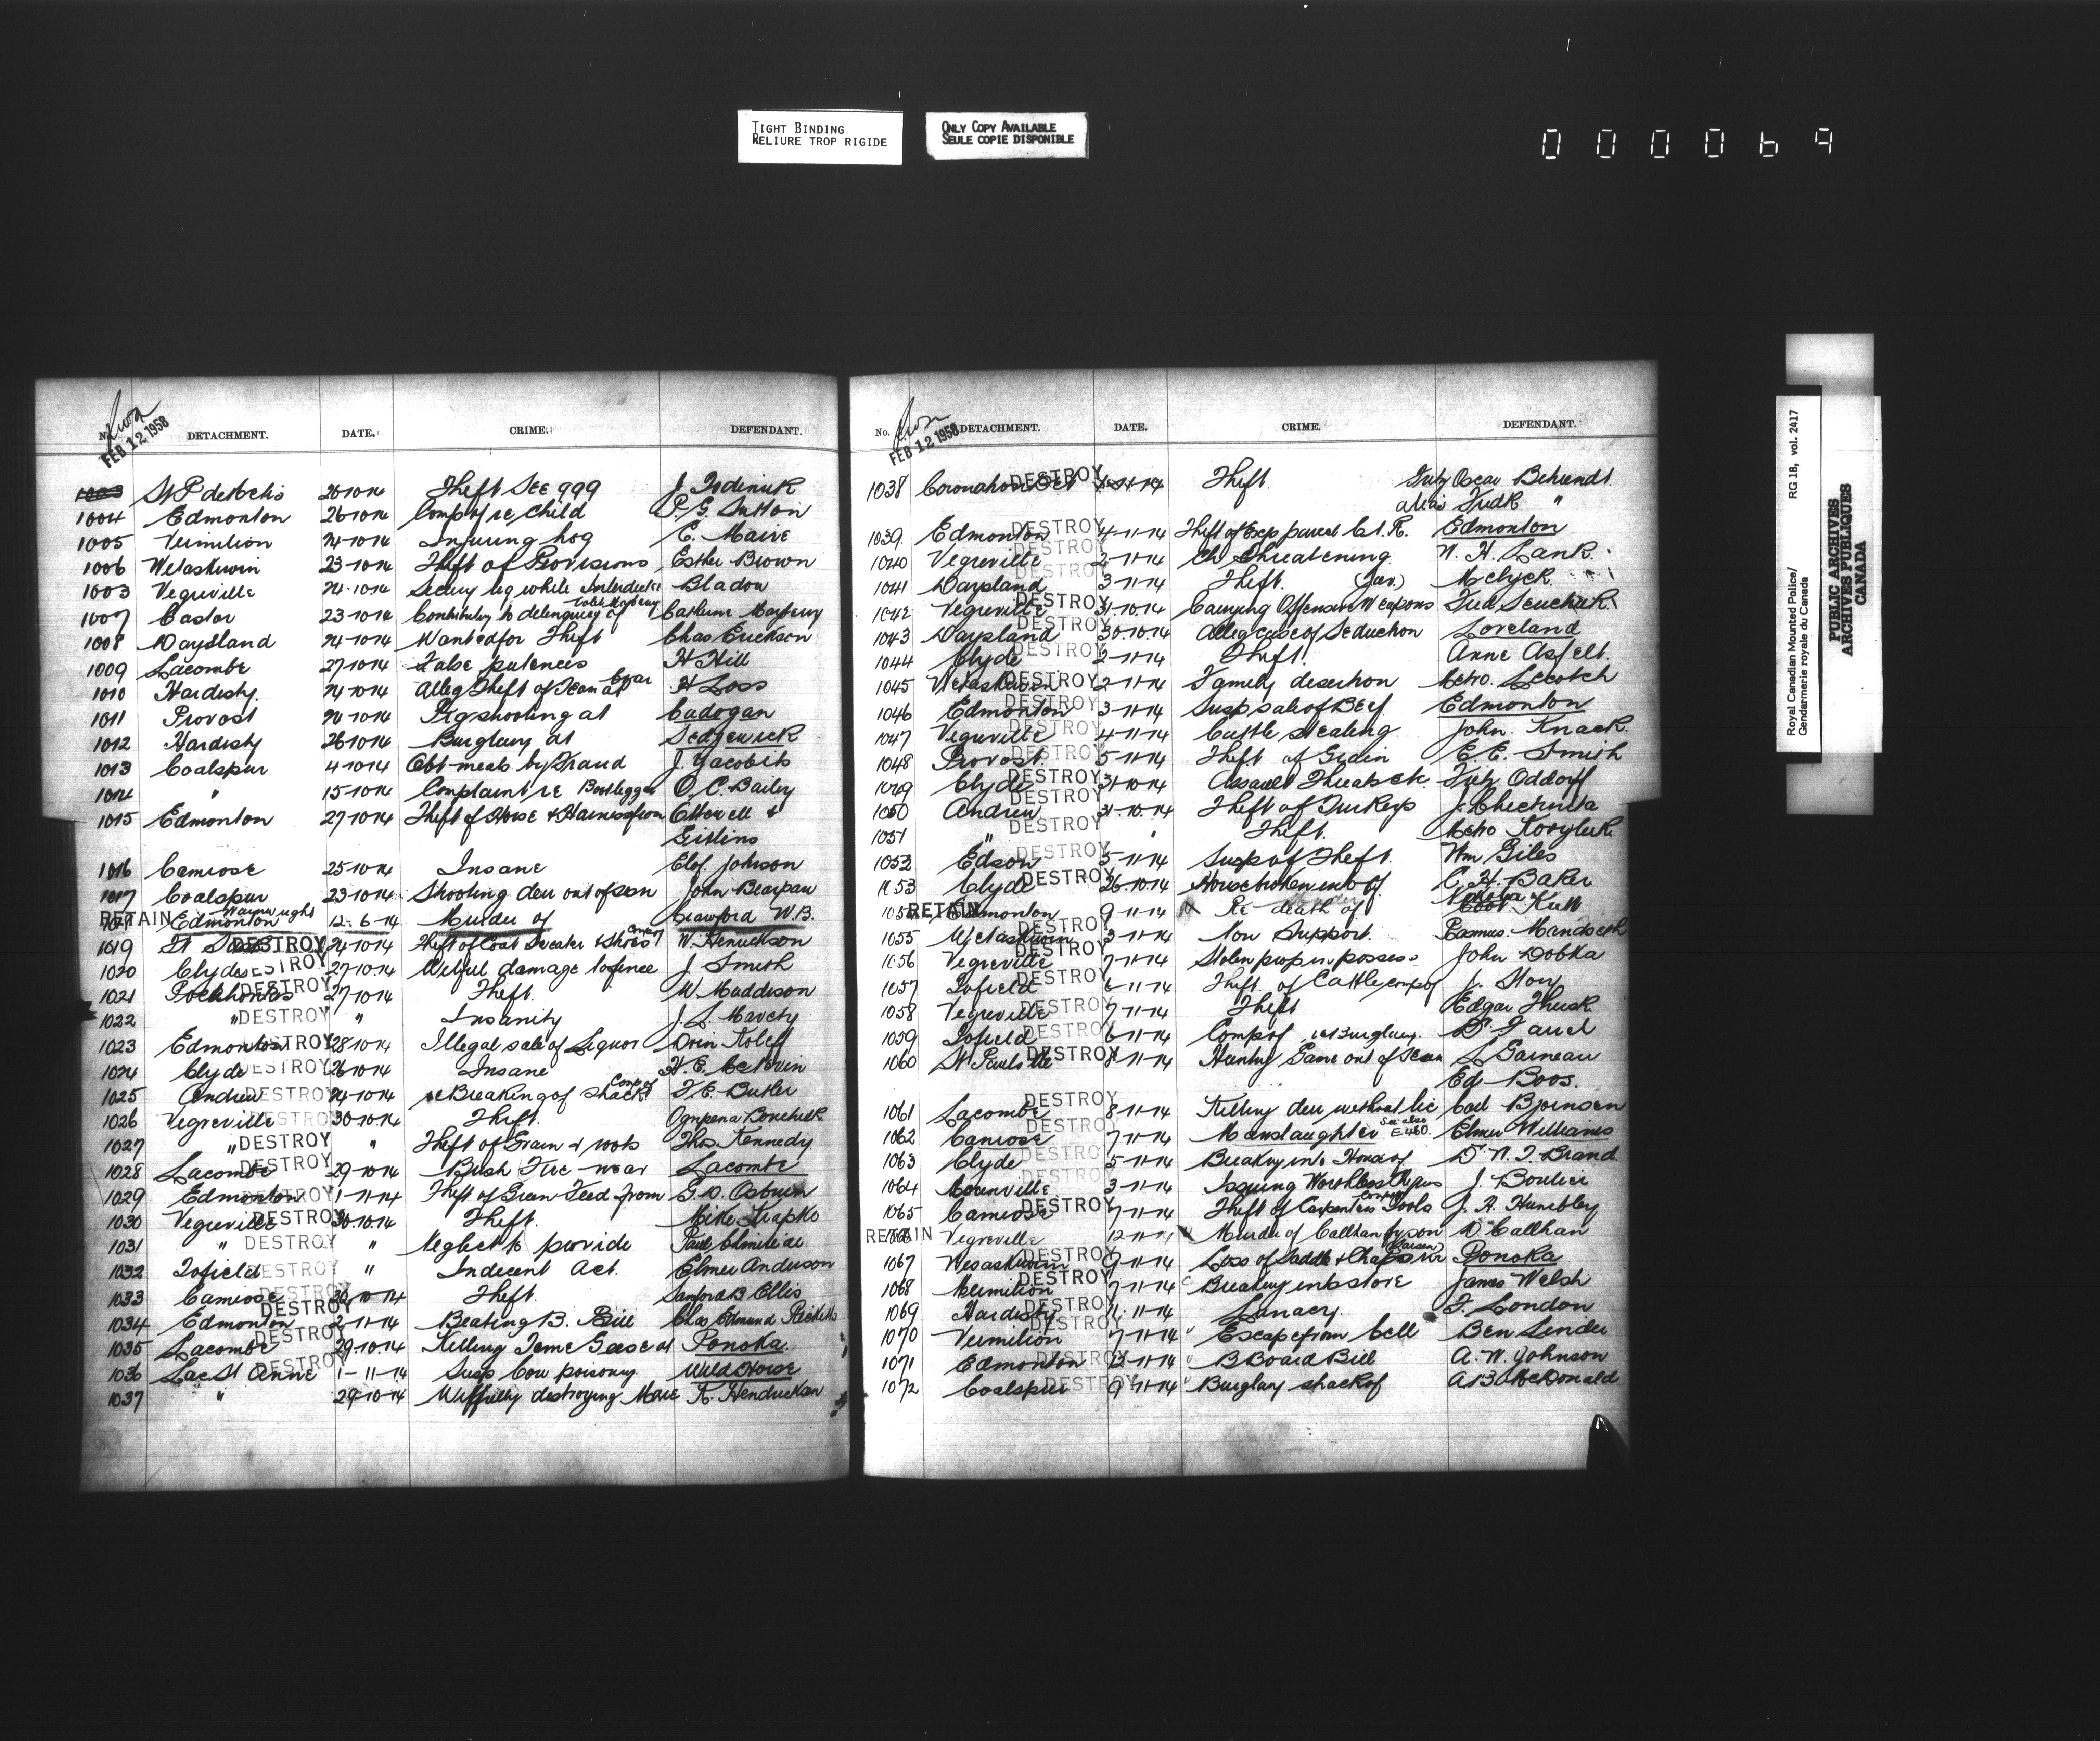 TIGHT BINDING
RELIURE TROP RIGIDE
ONLY COPY AVAILABLE
SEULE COPIE DISPONIBLE
000069
Royal Canadian Mounted Police/ RG 18, vol. 2417
Gendarmerie royale du Canada
PUBLIC ARCHIVES
ARCHIVES PUBLIQUES
CANADA
FEB 12 1958
No. DETACHMENT. DATE. CRIME. DEFENDANT.
1003 26-10-14 Theft See 999 J.
1004 Edmonton 26-10-14 Comp of re Child P. G. Sutton
1005 Vermilion 24-10-14 Injuring hog C. Maire
1006 Wetaskiwin 23-10-14 Theft of Provisions Esther Brown
1003 Vegreville 24-10-14 liq while Interdicted Bladow
1007 Castor 23-10-14 Contributing to delinquency of
1008 Daysland 24-10-14 Wanted for Theft Chas Erickson
1009 Lacombe 27-10-14 False pretences H Hill
1010 Hardisty. 24-10-14 Alleg Theft of at H Loss
1011 Provost 24-10-14 Pig shooting at Cadogan
1012 Hardisty 26-10-14 Burglary at Sedgewick
1013 Coalspur 4-10-14 Obt meals by Fraud J. Yacobits
1014 " 15-10-14 Complaint re Bootlegger O. C. Bailey
1015 Edmonton 27-10-14 Theft of Horse & Harness from Ottewell &
Gitlins
1016 Camrose 25-10-14 Insane Elof Johnson
1017 Coalspur 23-10-14 Shooting deer out of sean John Bearpaw
RETAIN Edmonton Wainwright 12-6-14 Murder of Crawford W.B.
1019 DESTROY 24-10-14 Theft of Coat Sweater & Shoes W. Henrickson
1020 Clyde DESTROY 27-10-14 Wilful damage to fence J. Smith
1021 Pocahontas DESTROY 27-10-14 Theft. W. Maddison
1022 " DESTROY " Insanity J. S. Mavety
1023 Edmonton DESTROY 28-10-14 Illegal sale of Liquor Dorin Koleff
1024 Clyde DESTROY 26-10-14 Insane H. E.
1025 Andrew DESTROY 24-10-14 re Breaking of shack Comp of F. E. Butler
1026 Vegreville DESTROY 30-10-14 Theft.
1027 " DESTROY " Theft of Grain & Thos Kennedy
1028 Lacombe DESTROY 29-10-14 Bush Fire near Lacombe
1029 Edmonton DESTROY 1-11-14 Theft of Green Feed from G. D. Osburn
1030 Vegreville DESTROY 30-10-14 Theft. Mike Krapko
1031 " DESTROY " Neglect to provide Paul
1032 Tofield DESTROY " Indecent Act. Elmer Anderson
1033 Camrose DESTROY 30-10-14 Theft. Sanford B Ellis
1034 Edmonton DESTROY 2-11-14 Beating B. Bill Chas Edmund Ricketts
1035 Lacombe DESTROY 29-10-14 Killing Tame Geese at Ponoka.
1036 Lac St Anne DESTROY 1-11-14 Susp Cow poisoning Wild Horse
1037 " 29-10-14 Wilfully destroying Mare K. Hendrickan
FEB 12 1958
No. DETACHMENT. DATE. CRIME. DEFENDANT.
1038 Coronation DESTROY Theft Fritz Oscar Behrendt.
alias Fredk "
1039. Edmonton DESTROY 4-11-14 Theft of Exp parcel C.N.R. Edmonton
1040 Vegreville DESTROY 2-11-14 Ch Threatening N. H. Lank.
1041 Daysland DESTROY 3-11-14 Theft. (Juv.) Melyck.
1042 Vegreville DESTROY 31-10-14 Carrying Offensive Weapons Fred Senchuk
1043 Daysland DESTROY 30-10-14 Alleg case of Seduction Loreland
1044 Clyde DESTROY 2-11-14 Theft. Anne Asfelt.
1045 Wetaskiwin DESTROY 2-11-14 Family desertion Metro.
1046 Edmonton DESTROY 3-11-14 Susp sale of Beef Edmonton
1047 Vegreville DESTROY 4-11-14 Cattle Stealing John Knack.
1048 Provost. DESTROY 5-11-14 Theft of Grain E. E. Smith
1049 Clyde DESTROY 31-10-14 Assault Threats &c. Fritz Oddorff
1050 Andrew DESTROY 31-10-14 Theft of Turkeys J.
1051 " DESTROY " Theft. Metro Koryluk
1052 Edson DESTROY 5-11-14 Susp of Theft. Wm Giles
1053 Clyde DESTROY 26-10-14 House broken into of C. H. Baker
1054 RETAIN Edmonton 9-11-14 Re death of
1055 Wetaskiwin DESTROY 3-11-14 Non Support. Rasmus. Mandseth
1056 Vegreville DESTROY 7-11-14 Stolen prop in possess. John Dobka
1057 Tofield DESTROY 6-11-14 Theft. of Cattle comp of J. Story
1058 Vegreville DESTROY 7-11-14 Theft Edgar Thusk
1059 Tofield DESTROY 6-11-14 Comp of re Burglary.
1060 St Pauls DESTROY 8-11-14 Hunting Game out of sean L Garneau
Ed Boos.
1061 Lacombe DESTROY 8-11-14 Killing deer without lic Carl Bjornsen
1062 Camrose DESTROY 7-11-14 Manslaughter See also E460. Elmer Williams
1063 Clyde DESTROY 5-11-14 Breaking into House of D. N. T. Brand.
1064 DESTROY 3-11-14 Issuing Worthless Cheques J. Boulier
1065 Camrose DESTROY 7-11-14 Theft of Carpenters Tools J. A. Humbley
RETAIN Vegreville 12-11-11 Murder of Callhan by son D Callhan
1067 Wetaskiwin DESTROY 9-11-14 Loss of Saddle & Chaps nr Ponoka
1068 Vermilion DESTROY 7-11-14 Breaking into store James Welsh
1069 Hardisty DESTROY 11-11-14 Lunacy. T. London
1070 Vermilion DESTROY 7-11-14 Escape from Cell Ben Lender
1071 Edmonton DESTROY 12-11-14 B Board Bill A. W. Johnson
1072 Coalspur DESTROY 9-11-14 Burglary shack of A B McDonald